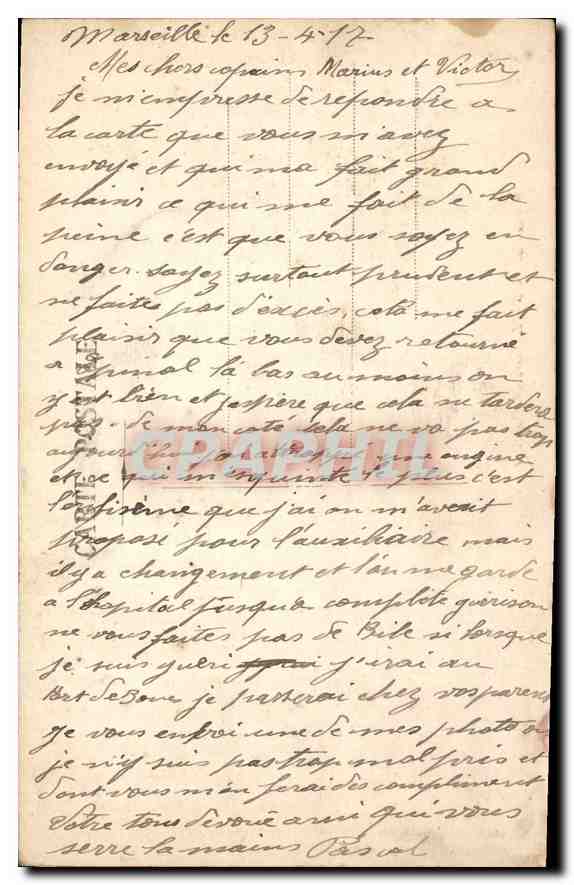 Marseille le 13-4-17
Mes chers copains Marius et Victor
je m'empresse de repondre a
la carte que vous m'avez
envoyé et qui ma fait grand
plaisir ce qui me fait de la
peine c'est que vous soyez en
danger. soyez surtout prudent et
ne faites pas d'excès, cela me fait
plaisir que vous devez retourné
a Epinal là bas au moins on
y est bien et j'espère que cela ne tardera
pas. de mon coté cela ne va pas trop
aujourd'hui j'ai attrapé une angine
et ce qui m'ennuie plus c'est
la fièvre que j'ai on m'avait
proposé pour l'auxiliaire mais
il y a changement et l'on me garde
a l'hopital jusqu'a complète guerison
ne vous faites pas de Bile si lorsque
je suis gueri j'irai au
Port de Bouc je passerai chez vos parents
Je vous envoi une de mes photo ou
je n'y suis pas trop mal pris et
dont vous m'en ferai des compliment
Votre tous dévoué ami qui vous
serre la mains Pascal
CARTE POSTALE
CPAPHIL